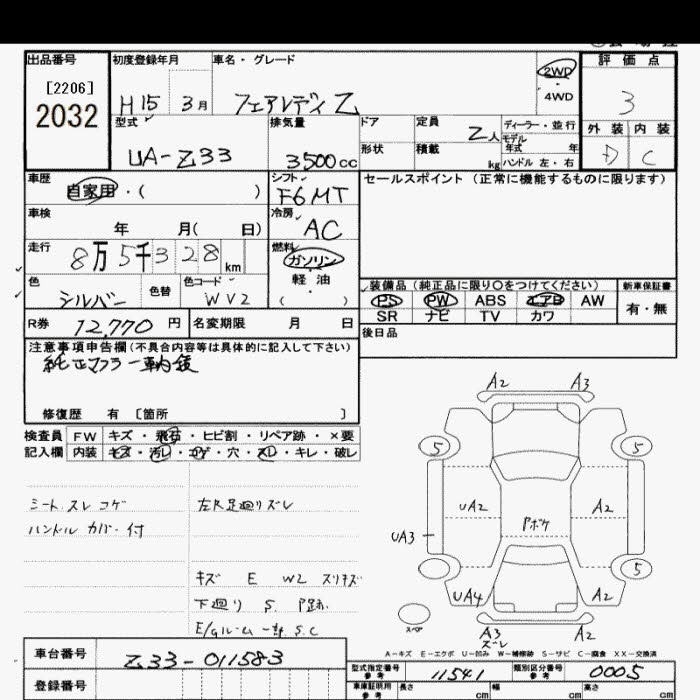 出品番号
[2206]
2032
初度登録年月
H15 3月
車名・グレード
フェアレディ Z
2WD
・
4WD
評価点
3
外装 内装
D C
型式
UA-Z33
排気量
3500cc
ドア
形状
定員
2人
積載
kg
ディーラー・並行
モデル
年式 年
ハンドル 左・右
車歴
自家用・( )
シフト
F6 MT
セールスポイント（正常に機能するものに限ります）
車検
年 月( 日)
冷房
AC
走行
8万5千328km
燃料
ガソリン
軽油
( )
色
シルバー
色替
色コード
WV2
装備品（純正品に限り○をつけてください）
PS PW ABS エアB AW
SR ナビ TV カワ
新車保証書
有・無
R券 12,770 円
名変期限 月 日
後日品
注意事項申告欄(不具合内容等は具体的に記入して下さい)
純正マフラー
修復歴 有 〔箇所 〕
検査員
記入欄
FW キズ・飛石・ヒビ割・リペア跡・×要
内装 キズ・汚レ・コゲ・穴・スレ・キレ・破レ
シート スレ コゲ
ハンドル カバー付
左R足廻りズレ
キズ E W2 スリキズ
下廻り S. P跡
E/gルーム一部 S.C
A2 A3
5 5
UA2 A2
UA3
Pボケ
5
UA4 A2
スペア
A3
ズレ
A2
A-キズ E-エクボ U-凹み W-補修跡 S-サビ C-腐食 XX-交換済
車台番号
Z33-011583
登録番号
型式指定番号
参考
11541
類別区分番号
参考
0005
車庫証明用
参考
長さ cm
幅 cm
高さ cm